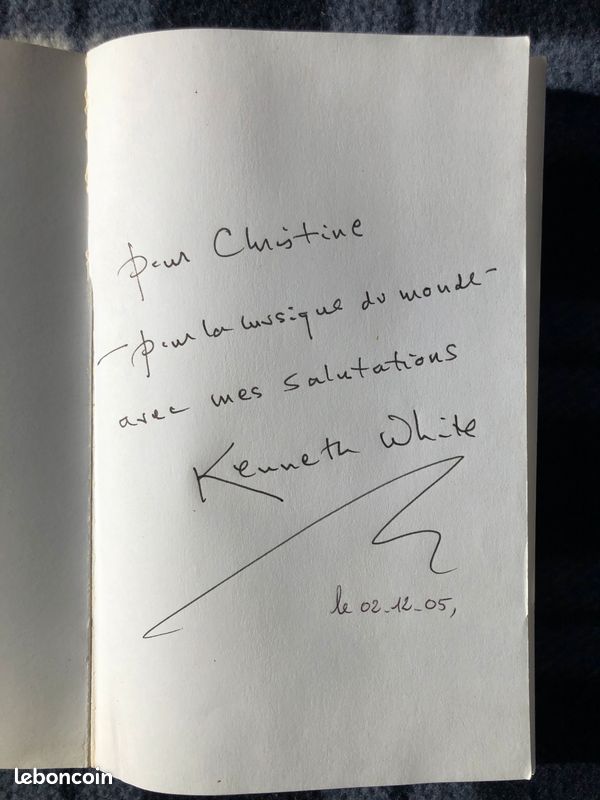 pour Christine
— pour la musique du monde —
avec mes salutations
Kenneth White
le 02-12-05,
leboncoin